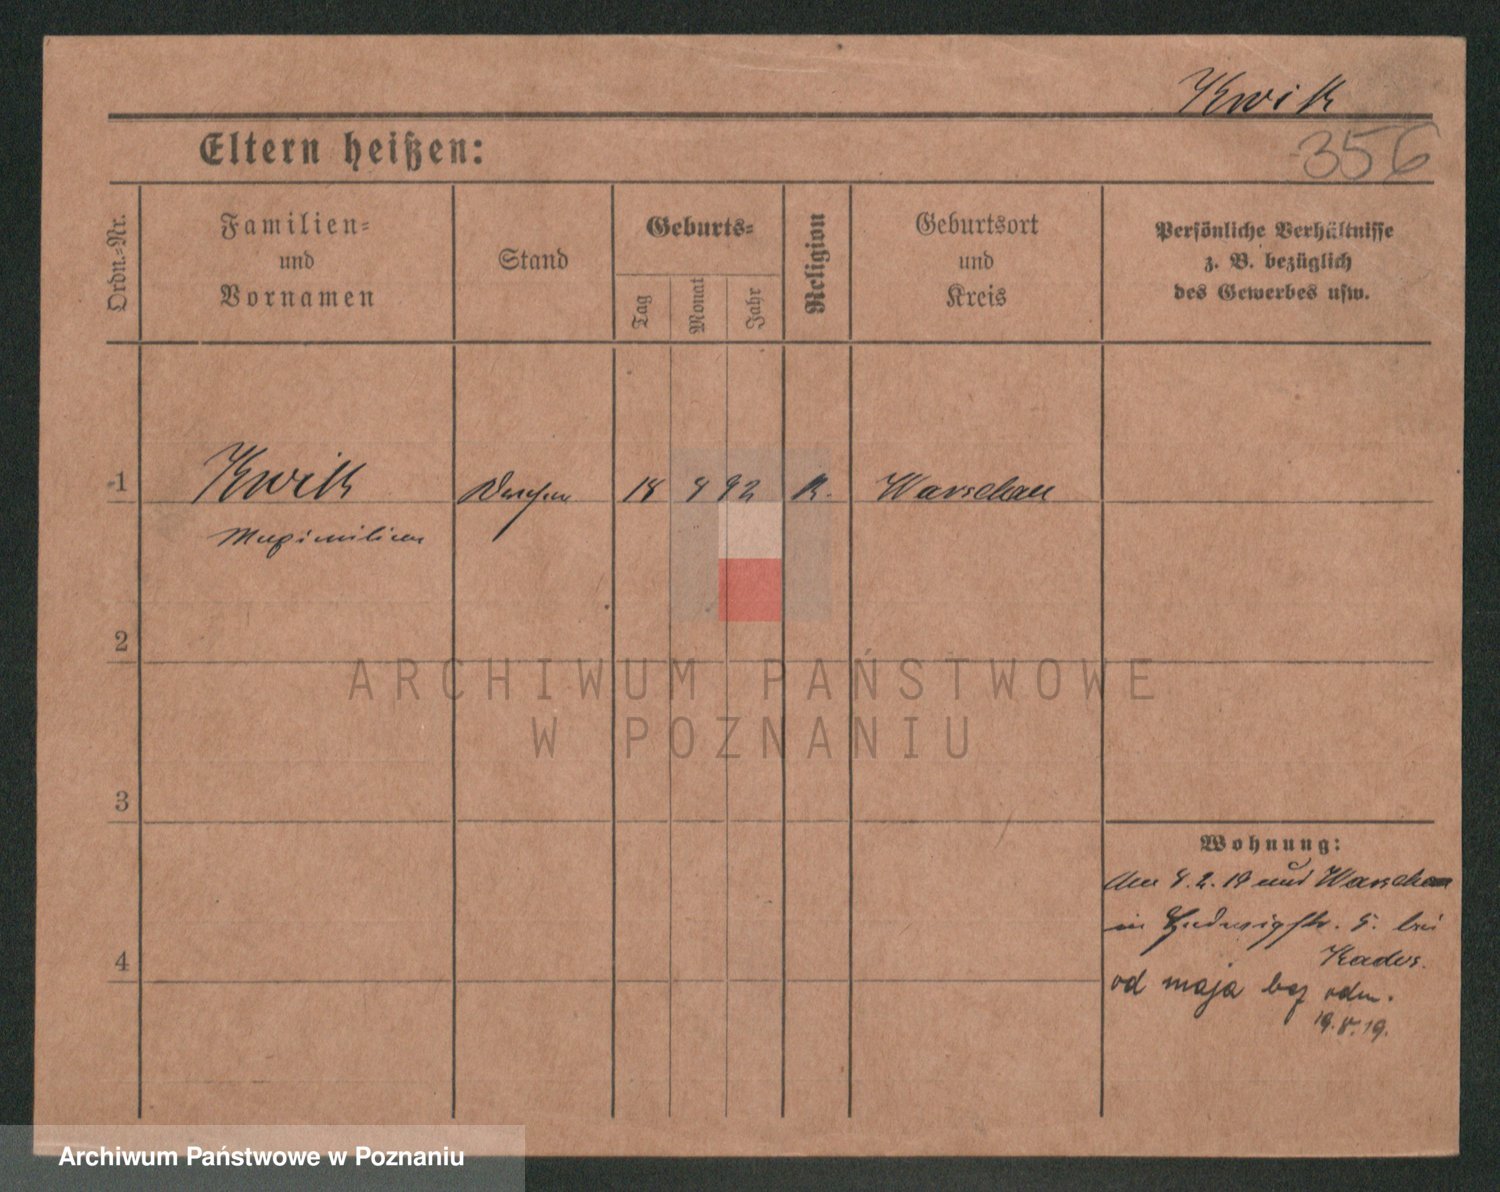 Kwik
356
Eltern heißen:
Ordn.-Nr.
Familien-
und
Vornamen
Stand
Geburts-
Tag
Monat
Jahr
Religion
Geburtsort
und
Kreis
Persönliche Verhältnisse
z. B. bezüglich
des Gewerbes usw.
1
Kwik
18
92
K.
Warschau
Maximilian
2
ARCHIWUM PAŃSTWOWE
W POZNANIU
3
Wohnung:
Warschau
in 5. bei
4
od maja bez odm.
19.8.19.
Archiwum Państwowe w Poznaniu